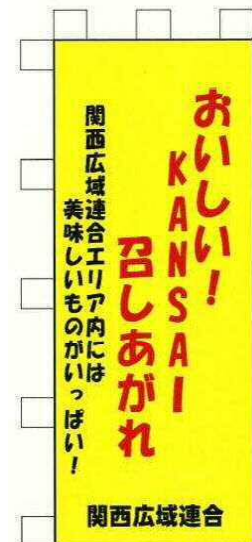 おいしい！
KANSAI
召しあがれ
関西広域連合エリア内には
美味しいものがいっぱい！
関西広域連合